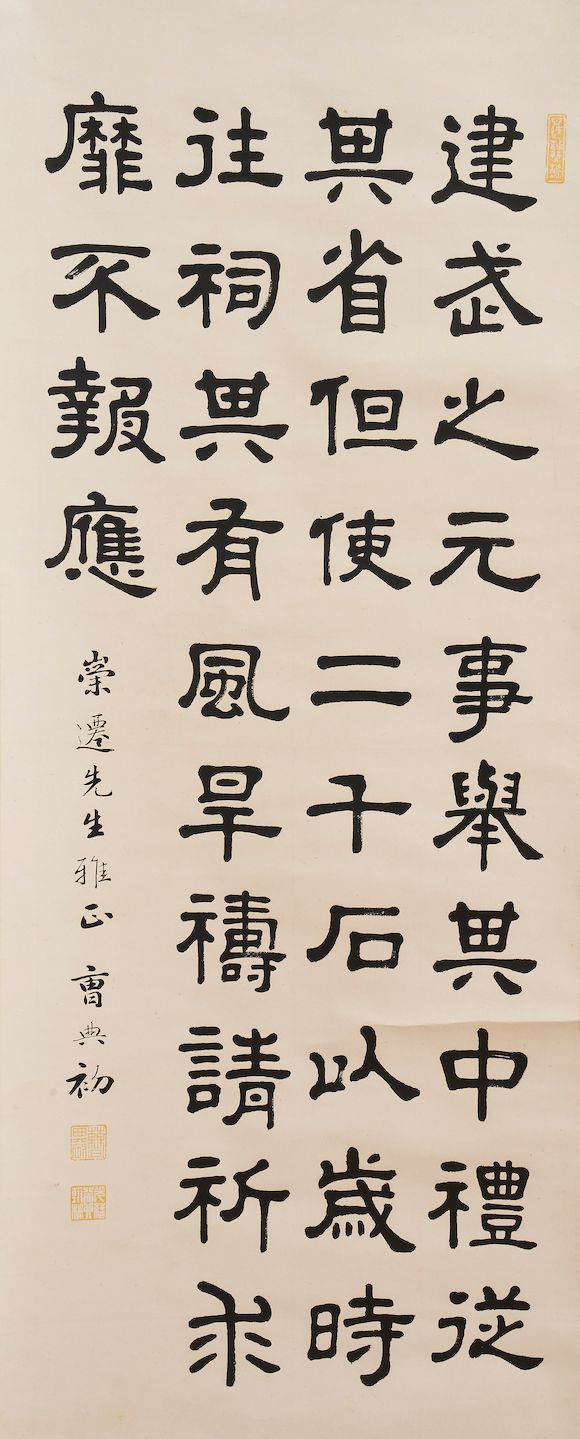 建武之元事舉其中禮從
其省但使二千石以歲時
往祠其有風旱禱請祈求
靡不報應
崇遷先生雅正 曹典初